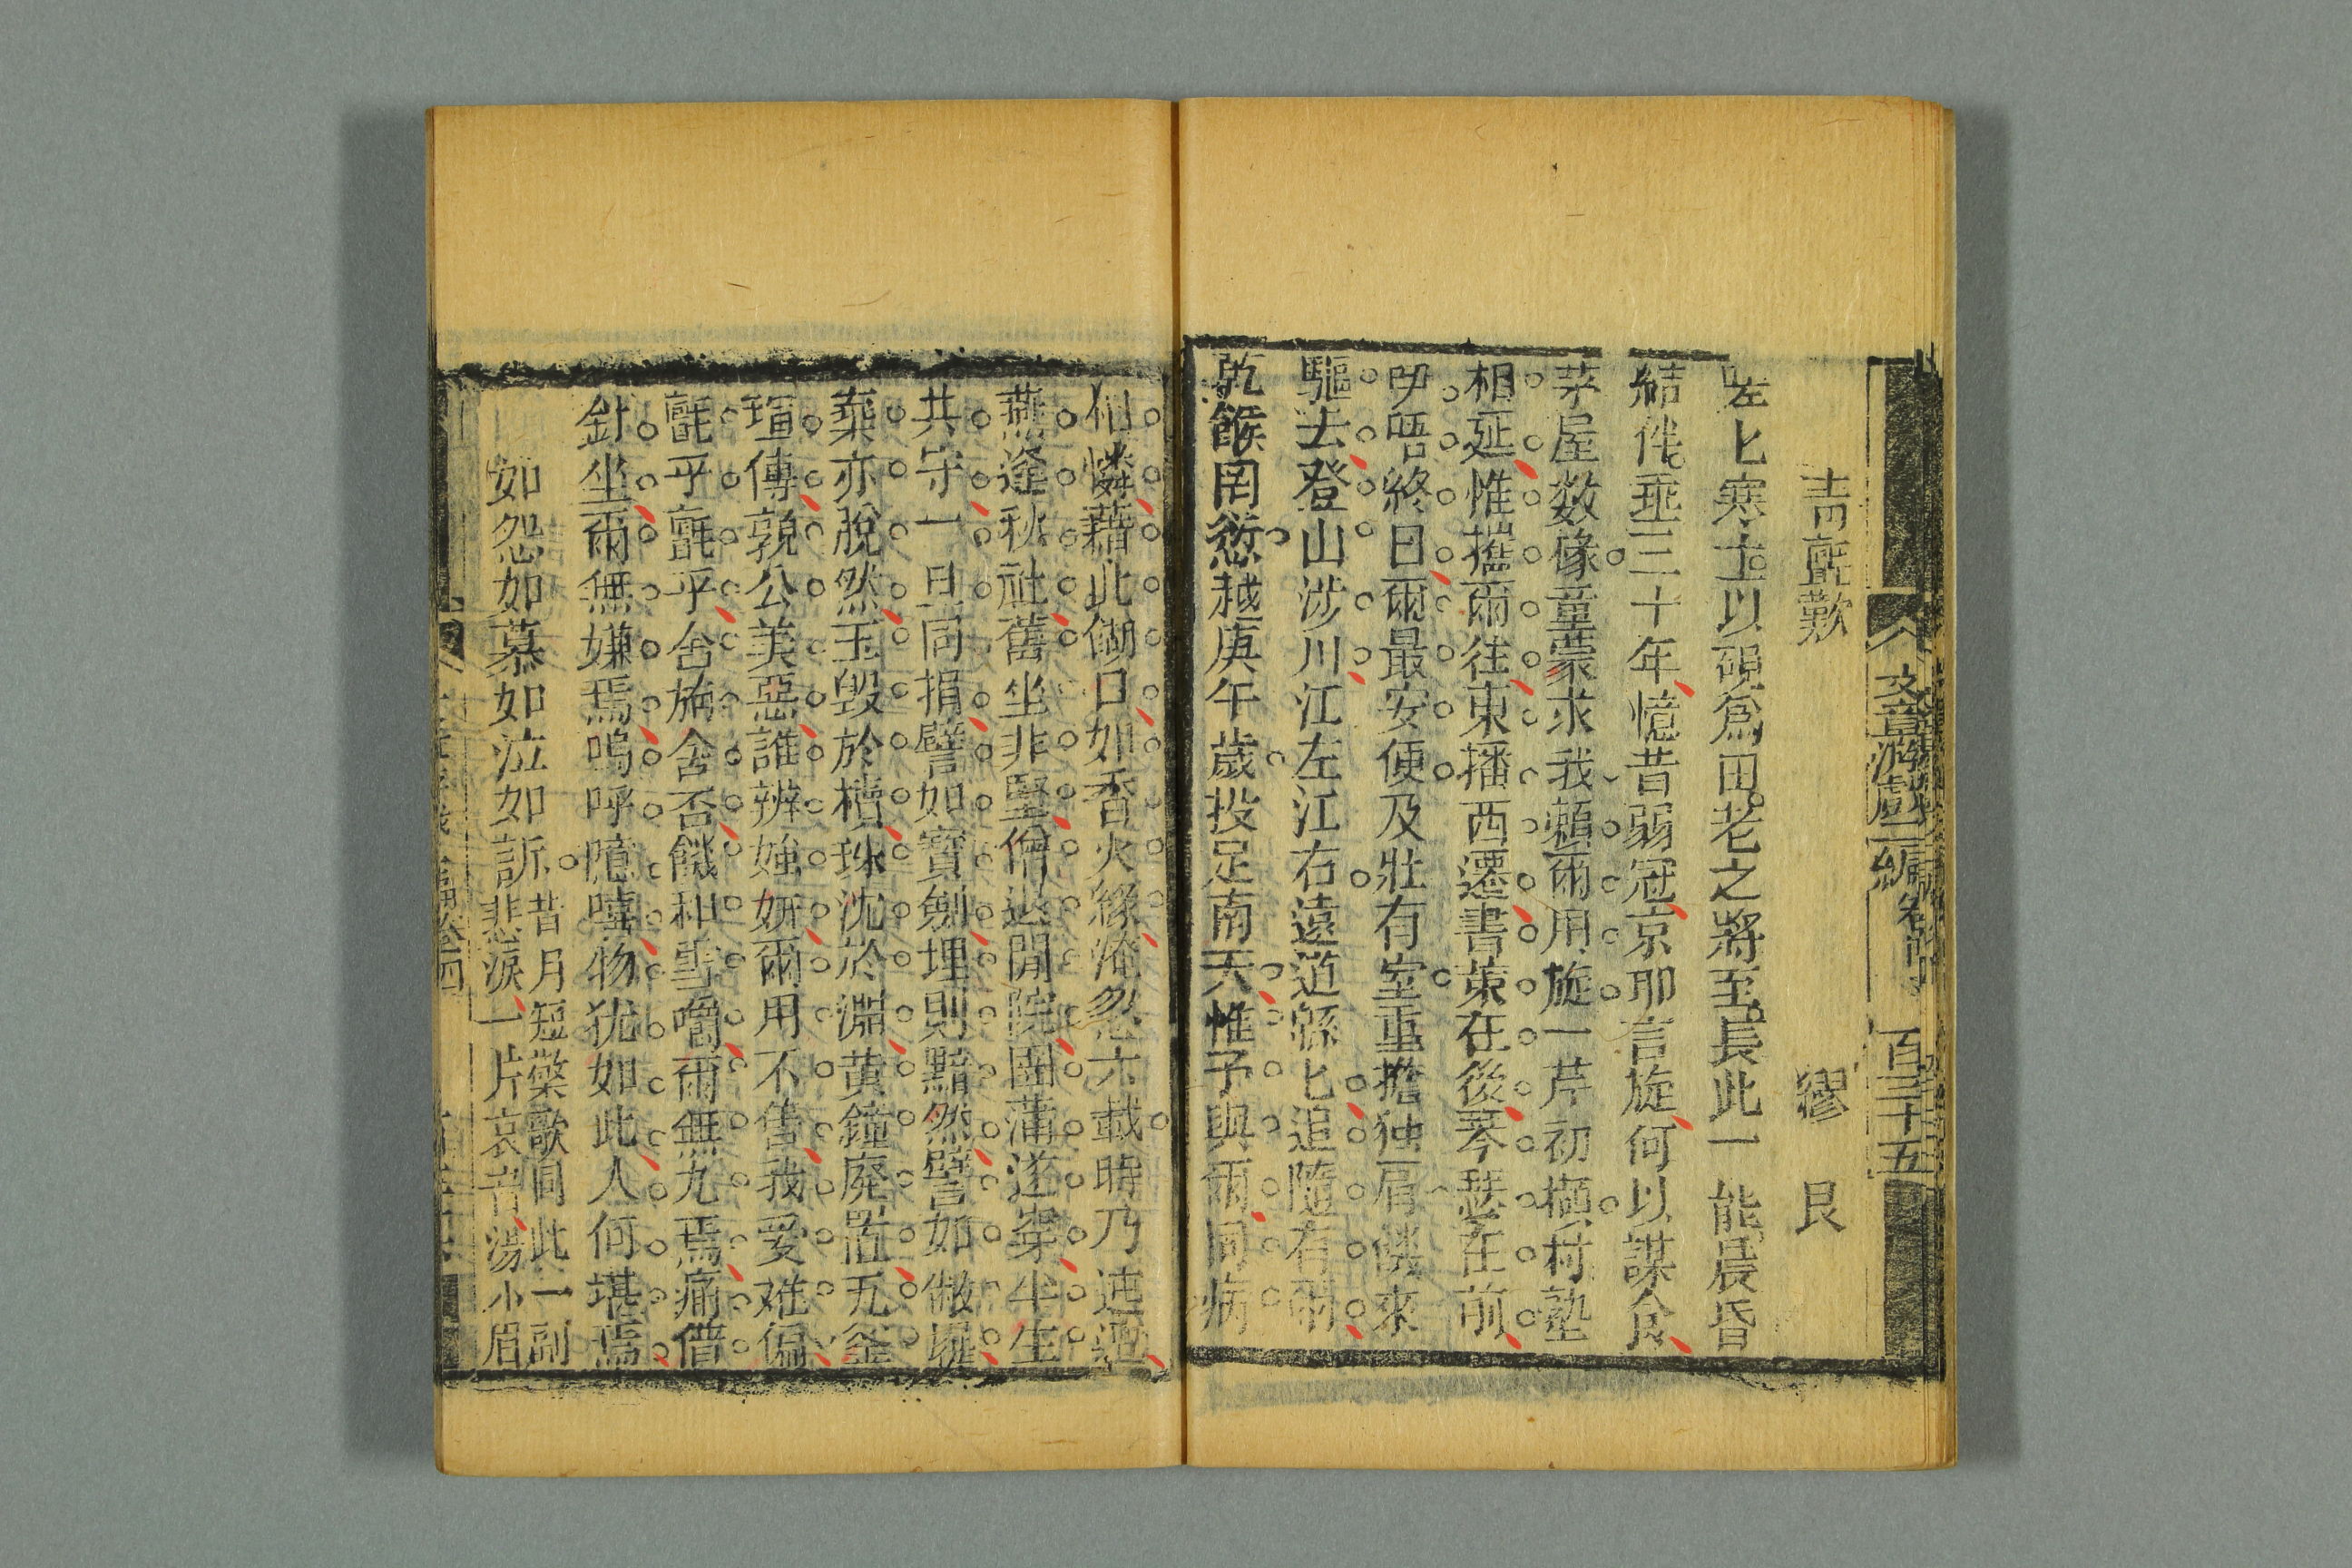 文章游戲二編 卷四 百三十五
青氊歎 繆 艮
嗟乜寒士以硯爲田老之將至長此一能晨昏
結伴垂三十年憶昔弱冠京耶言旋何以謀食
茅屋数椽童蒙求我頼爾用旋一芹初擷村塾
相延惟攜爾往東播西遷書策在後琴瑟在前
吚唔終日爾最安便及壯有室重擔独肩饑來
驅去登山涉川江左江右遠道緜乜追隨有爾
乾餱罔愆越庚午歲投足南天惟予與爾同病
相憐藉此餬口如香火緣淹忽六載時乃迍邅
燕逢秋社舊坐非堅僧退閒院團蒲遂穿半生
共守一旦同捐譬如寳劍埋則黯然譬如敝屣
棄亦脫然玉毀於櫝珠沈於淵黄鐘廃置瓦釡
瑄傳郭公美惡誰辨媸妍爾用不售我爱难偏
氊乎氊乎舍旃舍否餓和雪嚼爾無尤焉痛借
針坐爾無嫌焉嗚呼噫嘻物犹如此人何堪焉
如怨如慕如泣如訴昔月短檠歌同此一副
悲淚一片哀音湯小眉